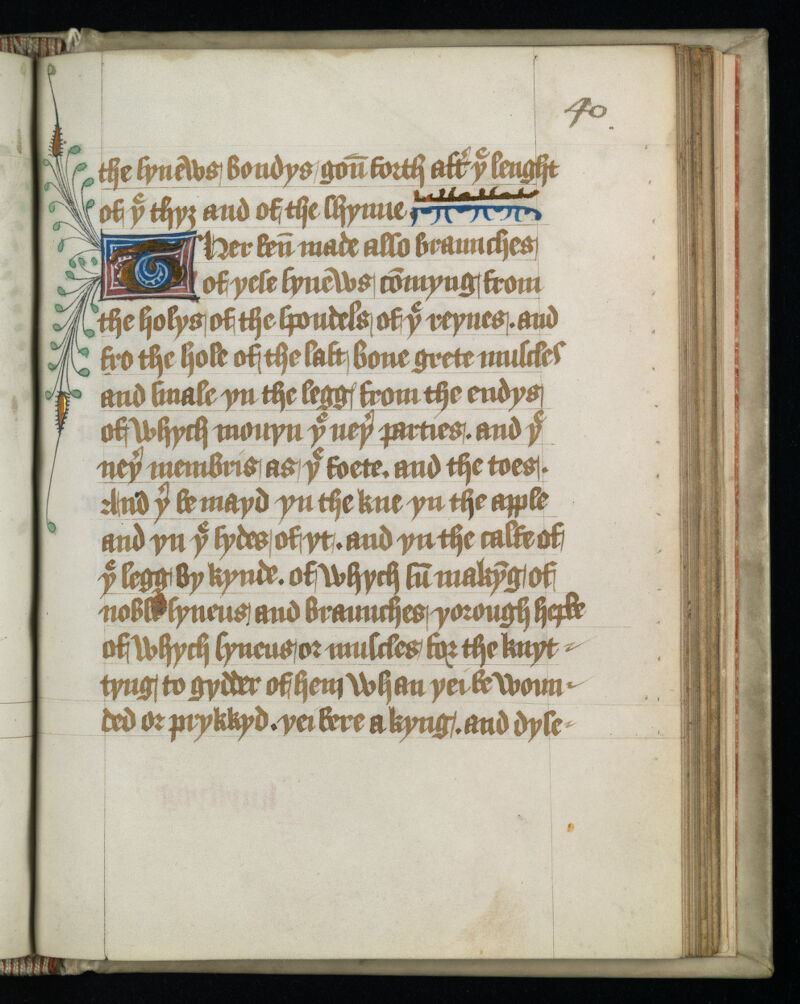 40
the synews bondys gon̄ forth aft͛ yͤ lenght
of yͤ thyȝ and of the shynne
Ther ben̄ made also braunches
of yese synews cōmyng from
the holys of the spondels of yͤ reynes. and
fro the hole of the last bone grete muscles
and smale yn the legg from the endys
of whych mouyn yͤ ney͛ parties. and yͤ
ney͛ membris as yͤ foete. and the toes.
And y͛ be mayd yn the kne yn the apple
and yn yͤ sydes of yt. and yn the calfe of
yͤ legg by kynde. of whych su̅ makȳg of
noble syneus and braunches yorough helpe
of whych syneus or muscles for the knyt
tyng to gydder of hem whan yei be woun
ded or prykkyd. yei bere akyng. and dyse